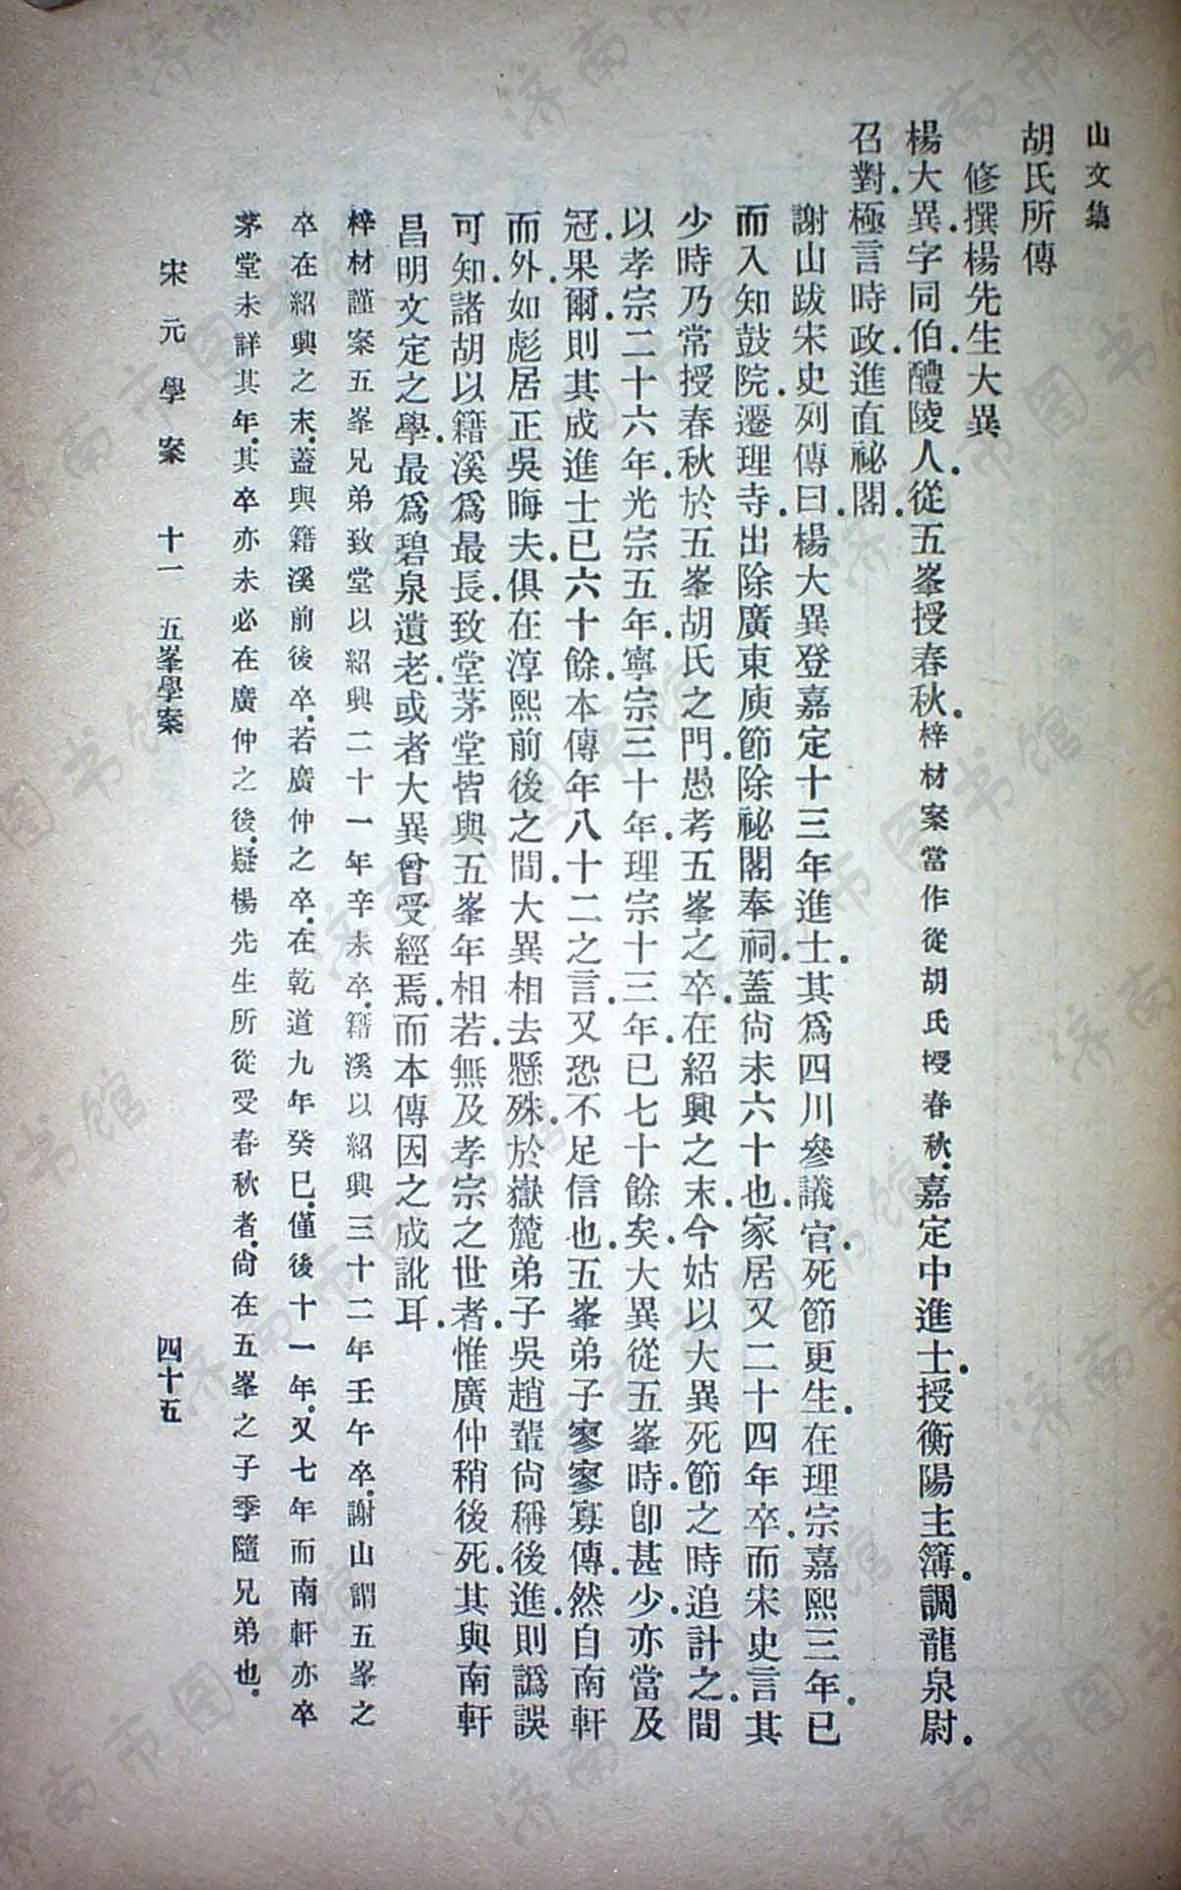 山文集
胡氏所傳
修撰楊先生大異
楊大異.字同伯.醴陵人.從五峯授春秋.梓材案當作從胡氏授春秋.嘉定中進士.授衡陽主簿.調龍泉尉.
召對.極言時政.進直祕閣.
謝山跋宋史列傳曰.楊大異登嘉定十三年進士.其爲四川參議官.死節更生.在理宗嘉熙三年.已
而入知鼓院.遷理寺.出除廣東庾節.除祕閣奉祠.蓋尙未六十也.家居又二十四年卒.而宋史言其
少時乃常授春秋於五峯胡氏之門.愚考五峯之卒.在紹興之末.今姑以大異死節之時追計之.間
以孝宗二十六年.光宗五年.寧宗三十年.理宗十三年.已七十餘矣.大異從五峯時.卽甚少.亦當及
冠.果爾.則其成進士已六十餘.本傳年八十二之言.又恐不足信也.五峯弟子寥寥寡傳.然自南軒
而外.如彪居正吳晦夫.俱在淳熙前後之間.大異相去懸殊.於嶽麓弟子吳趙輩尙稱後進.則譌誤
可知.諸胡以籍溪爲最長.致堂茅堂皆與五峯年相若.無及孝宗之世者.惟廣仲稍後死.其與南軒
昌明文定之學.最爲碧泉遺老.或者大異曾受經焉.而本傳因之成訛耳.
梓材謹案五峯兄弟致堂以紹興二十一年辛未卒.籍溪以紹興三十二年壬午卒.謝山謂五峯之
卒在紹興之末.蓋與籍溪前後卒.若廣仲之卒.在乾道九年癸巳.僅後十一年.又七年而南軒亦卒
茅堂未詳其年.其卒亦未必在廣仲之後.疑楊先生所從受春秋者.尙在五峯之子季隨兄弟也.
宋元學案 十一 五峯學案 四十五
济南市图书馆